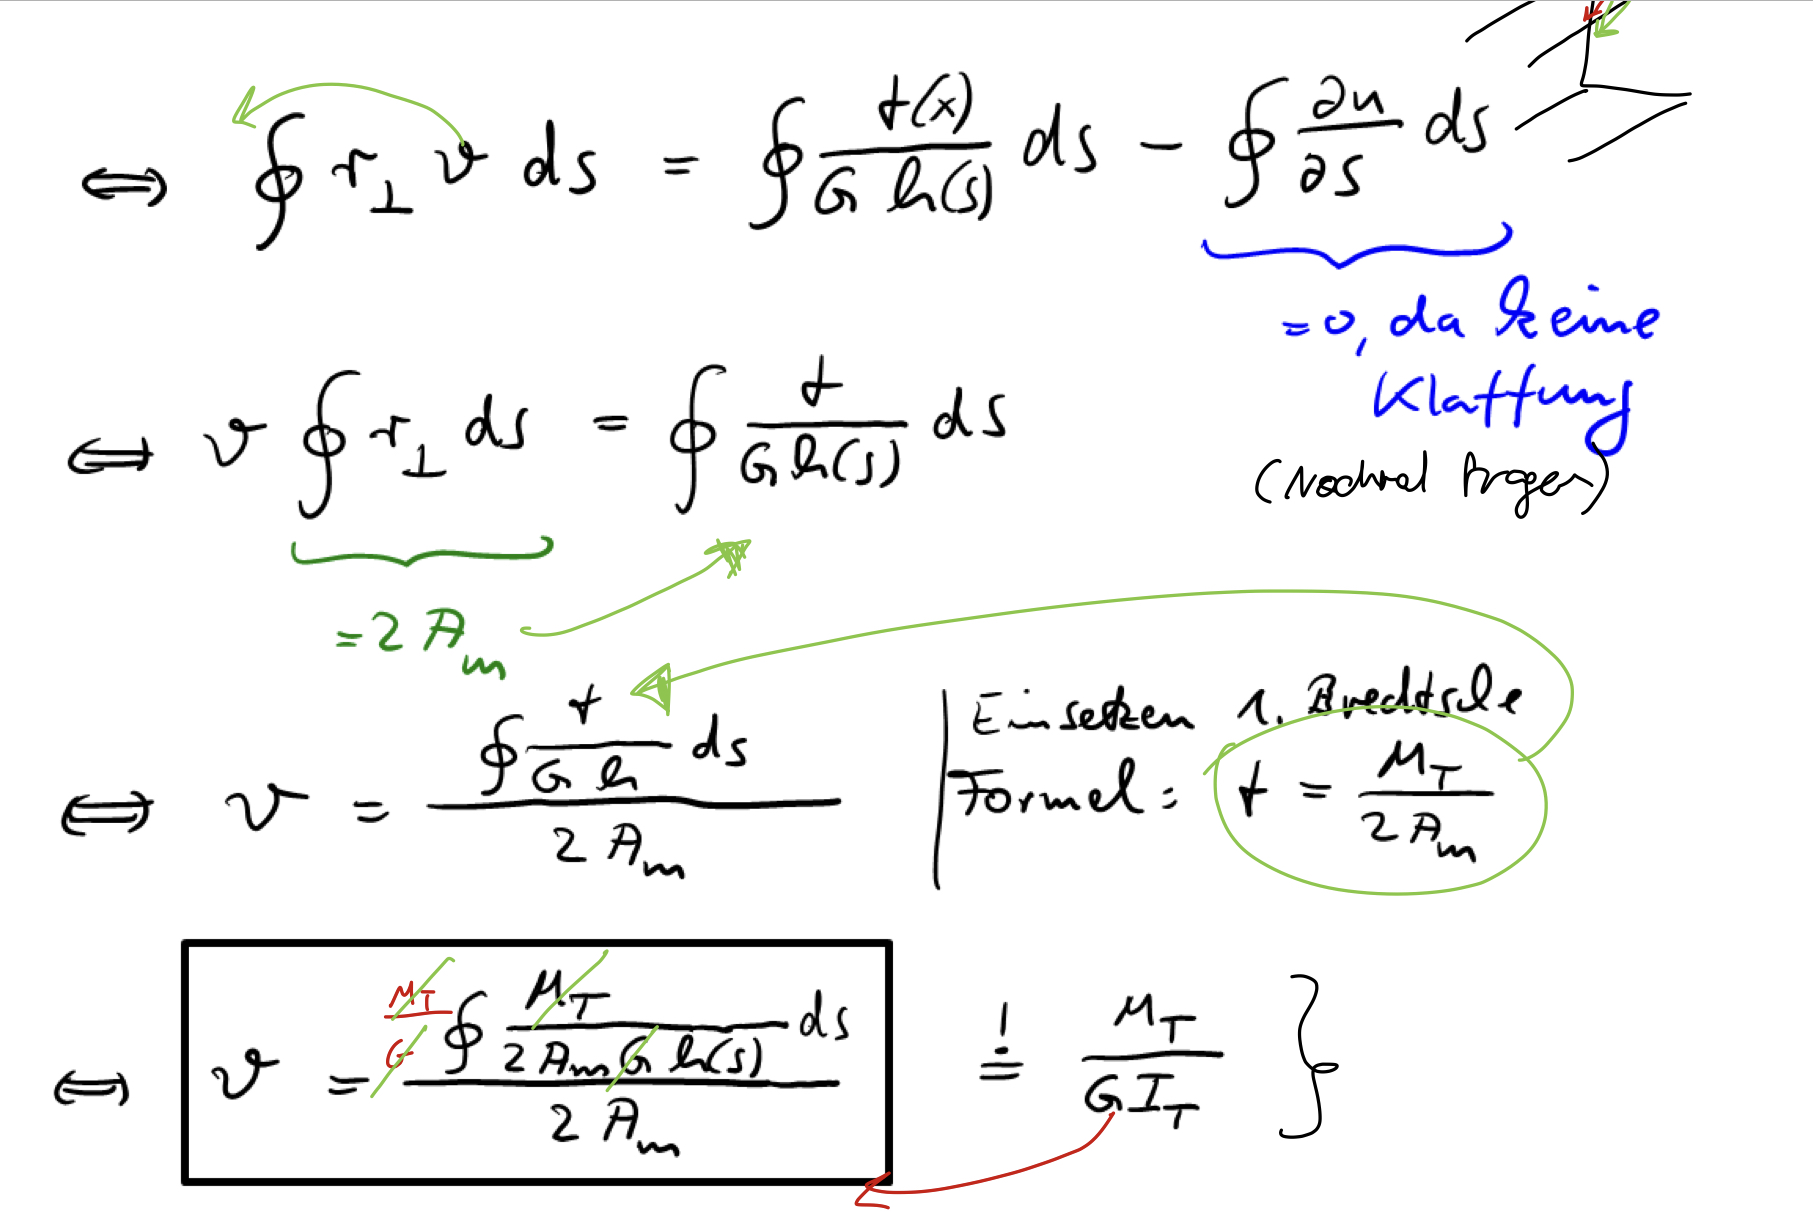 ⟺ ∮ r⊥ ϑ ds = ∮ t(x)/(G h(s)) ds − ∮ ∂u/∂s ds
=0, da keine
Klaffung
(Nochmal fragen)
⟺ ϑ ∮ r⊥ ds = ∮ t/(G h(s)) ds
=2 Am
⟺ ϑ = (∮ t/(G h) ds)/(2 Am)
Einsetzen 1. Bredtsche
Formel: t = MT/(2 Am)
⟺ ϑ = (MT/G ∮ MT/(2 Am G h(s)) ds)/(2 Am) =! MT/(G IT) }